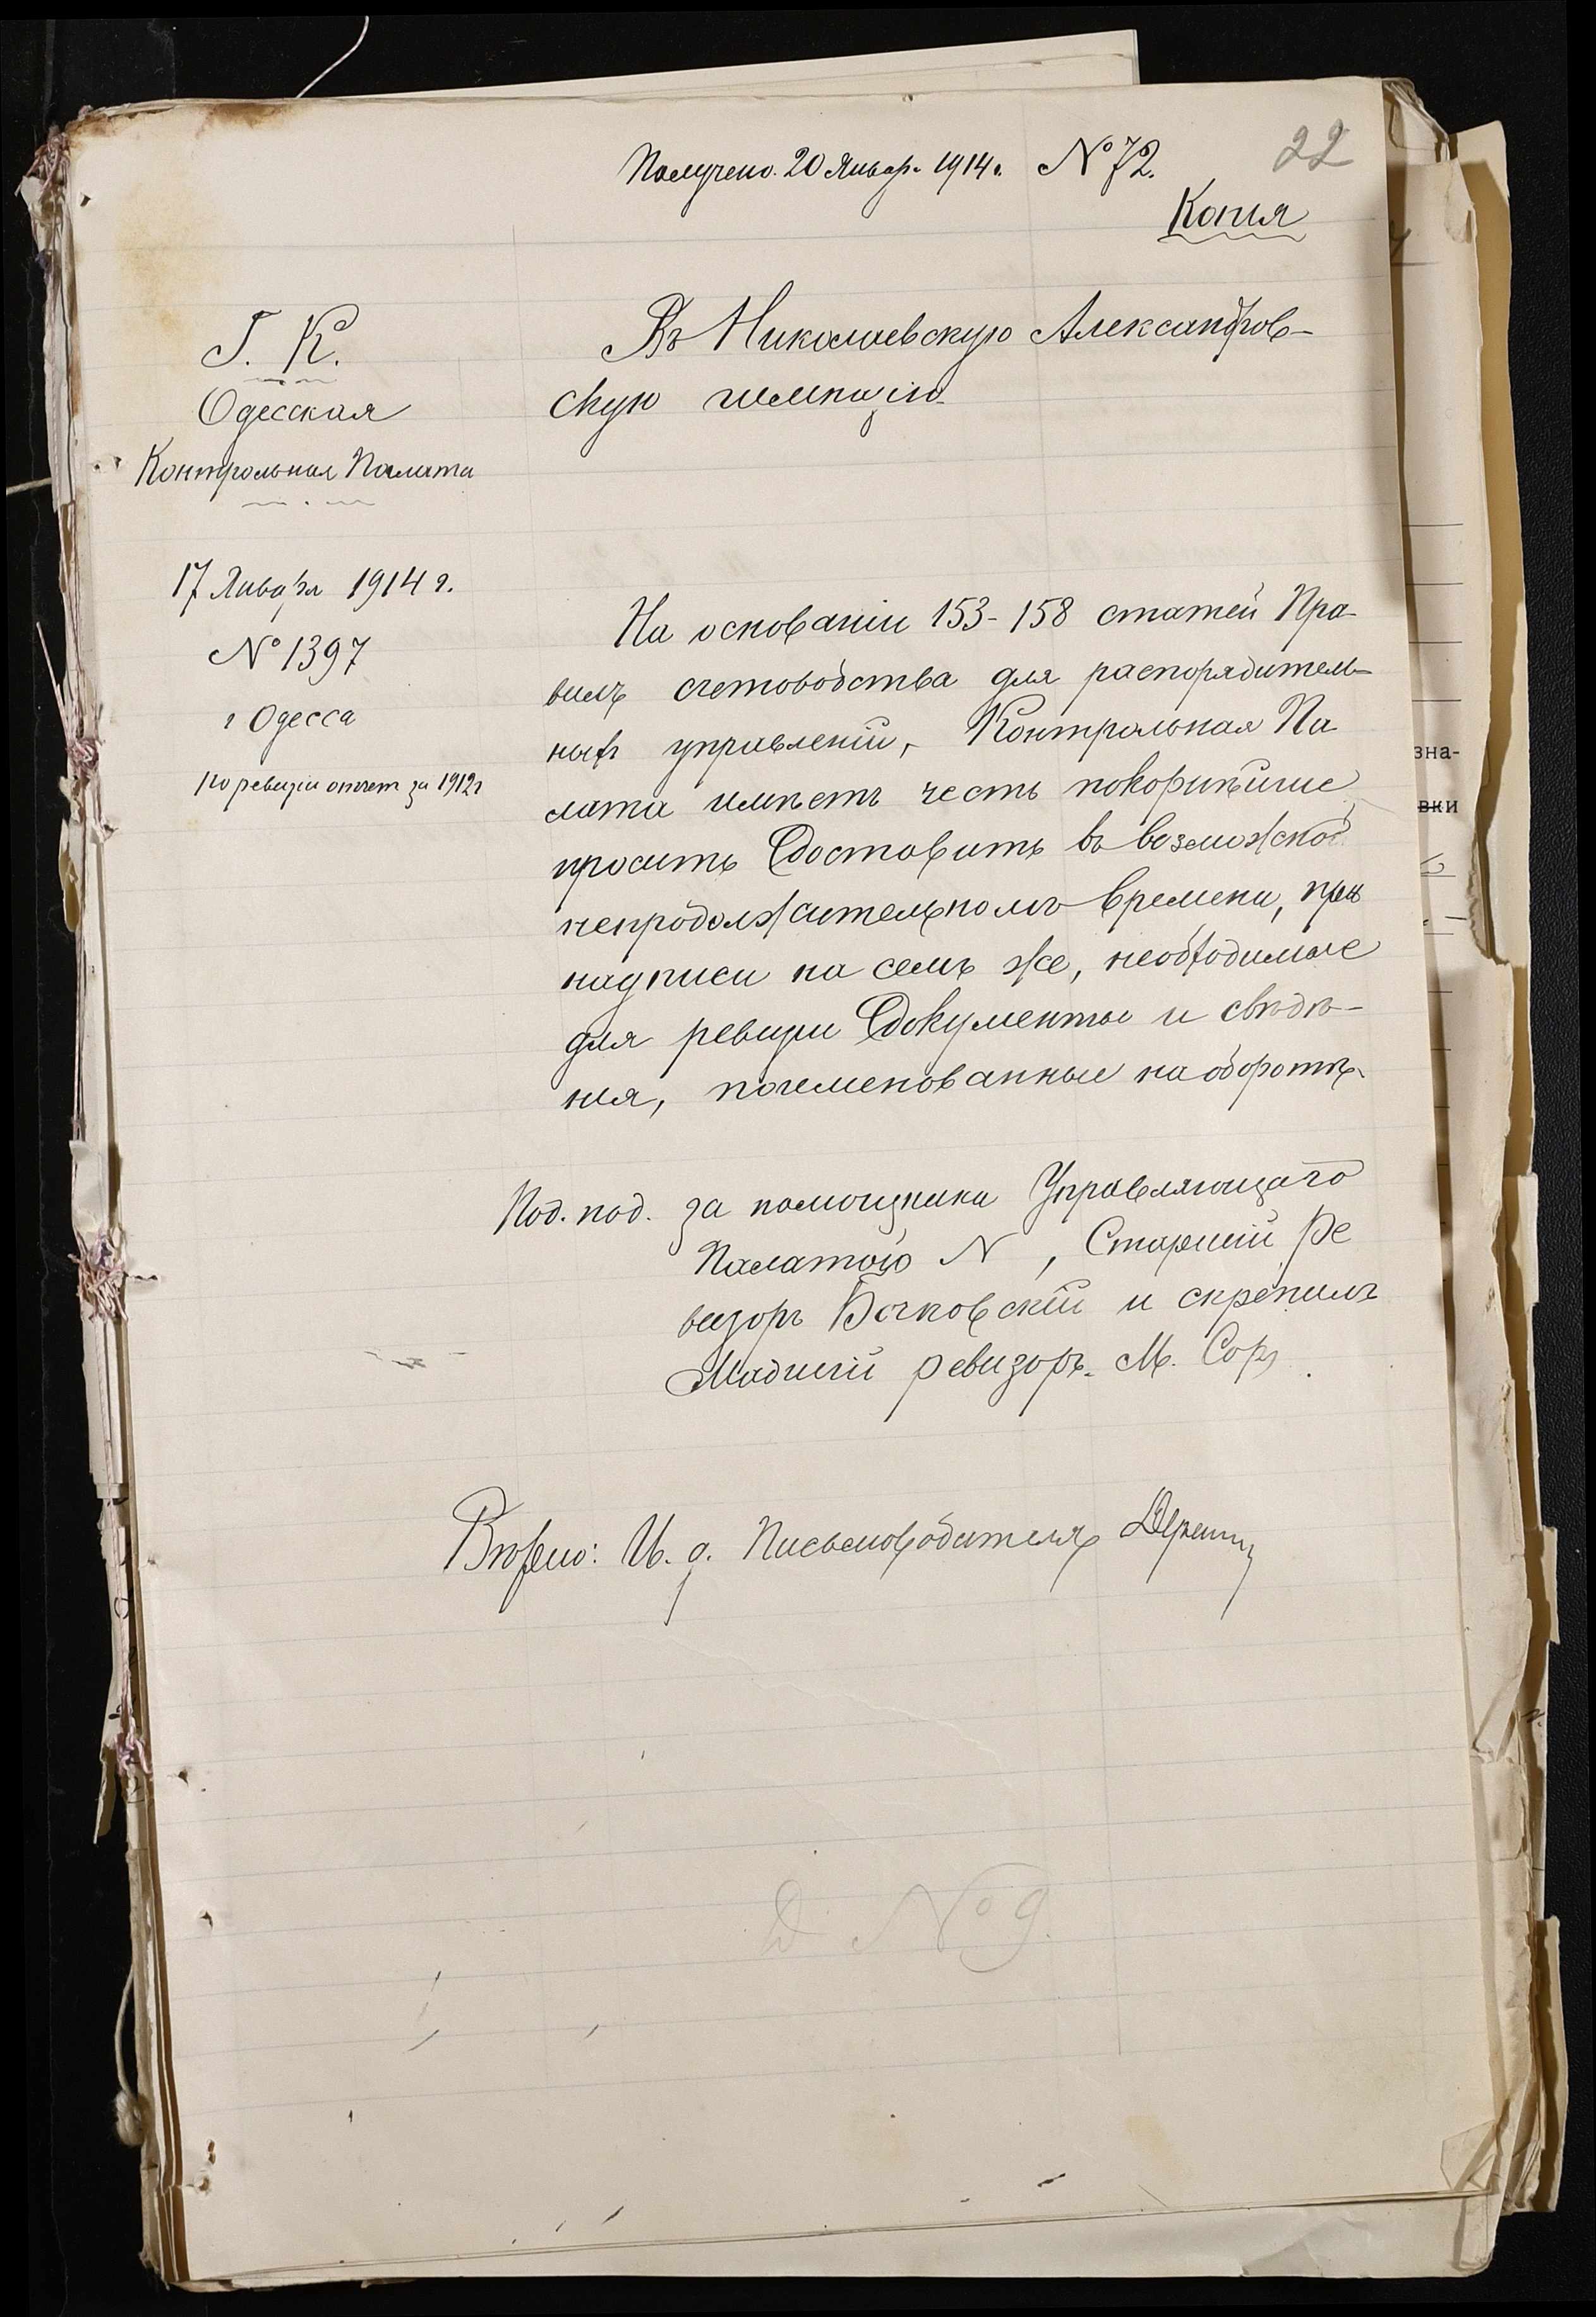 22
Получено. 20 Январ. 1914 г. № 72.
Копія
Г. К.
Одесская
Контрольная Палата
17 Января 1914 г.
№ 1397
г Одесса
по ревизіи отчет за 1912 г
Въ Николаевскую Александров-
скую гимназію
На основаніи 153-158 статей Пра-
вилъ счетоводства для распорядитель-
ныхъ управленій, Контрольная Па
лата имѣетъ честь покорнѣйше
просить доставить въ возможно
непродолжительномъ времени, при
надписи на семъ же, необходимые
для ревизіи документы и свѣдѣ-
нія, поименованные на оборотѣ.
Под. под. За помощника Управляющаго
Палатою N , Старшій Ре
визоръ и скрѣпилъ
Младшій ревизоръ. М.
Вѣрно: И. д. Письмоводителя
Д №9.
зна-
вки